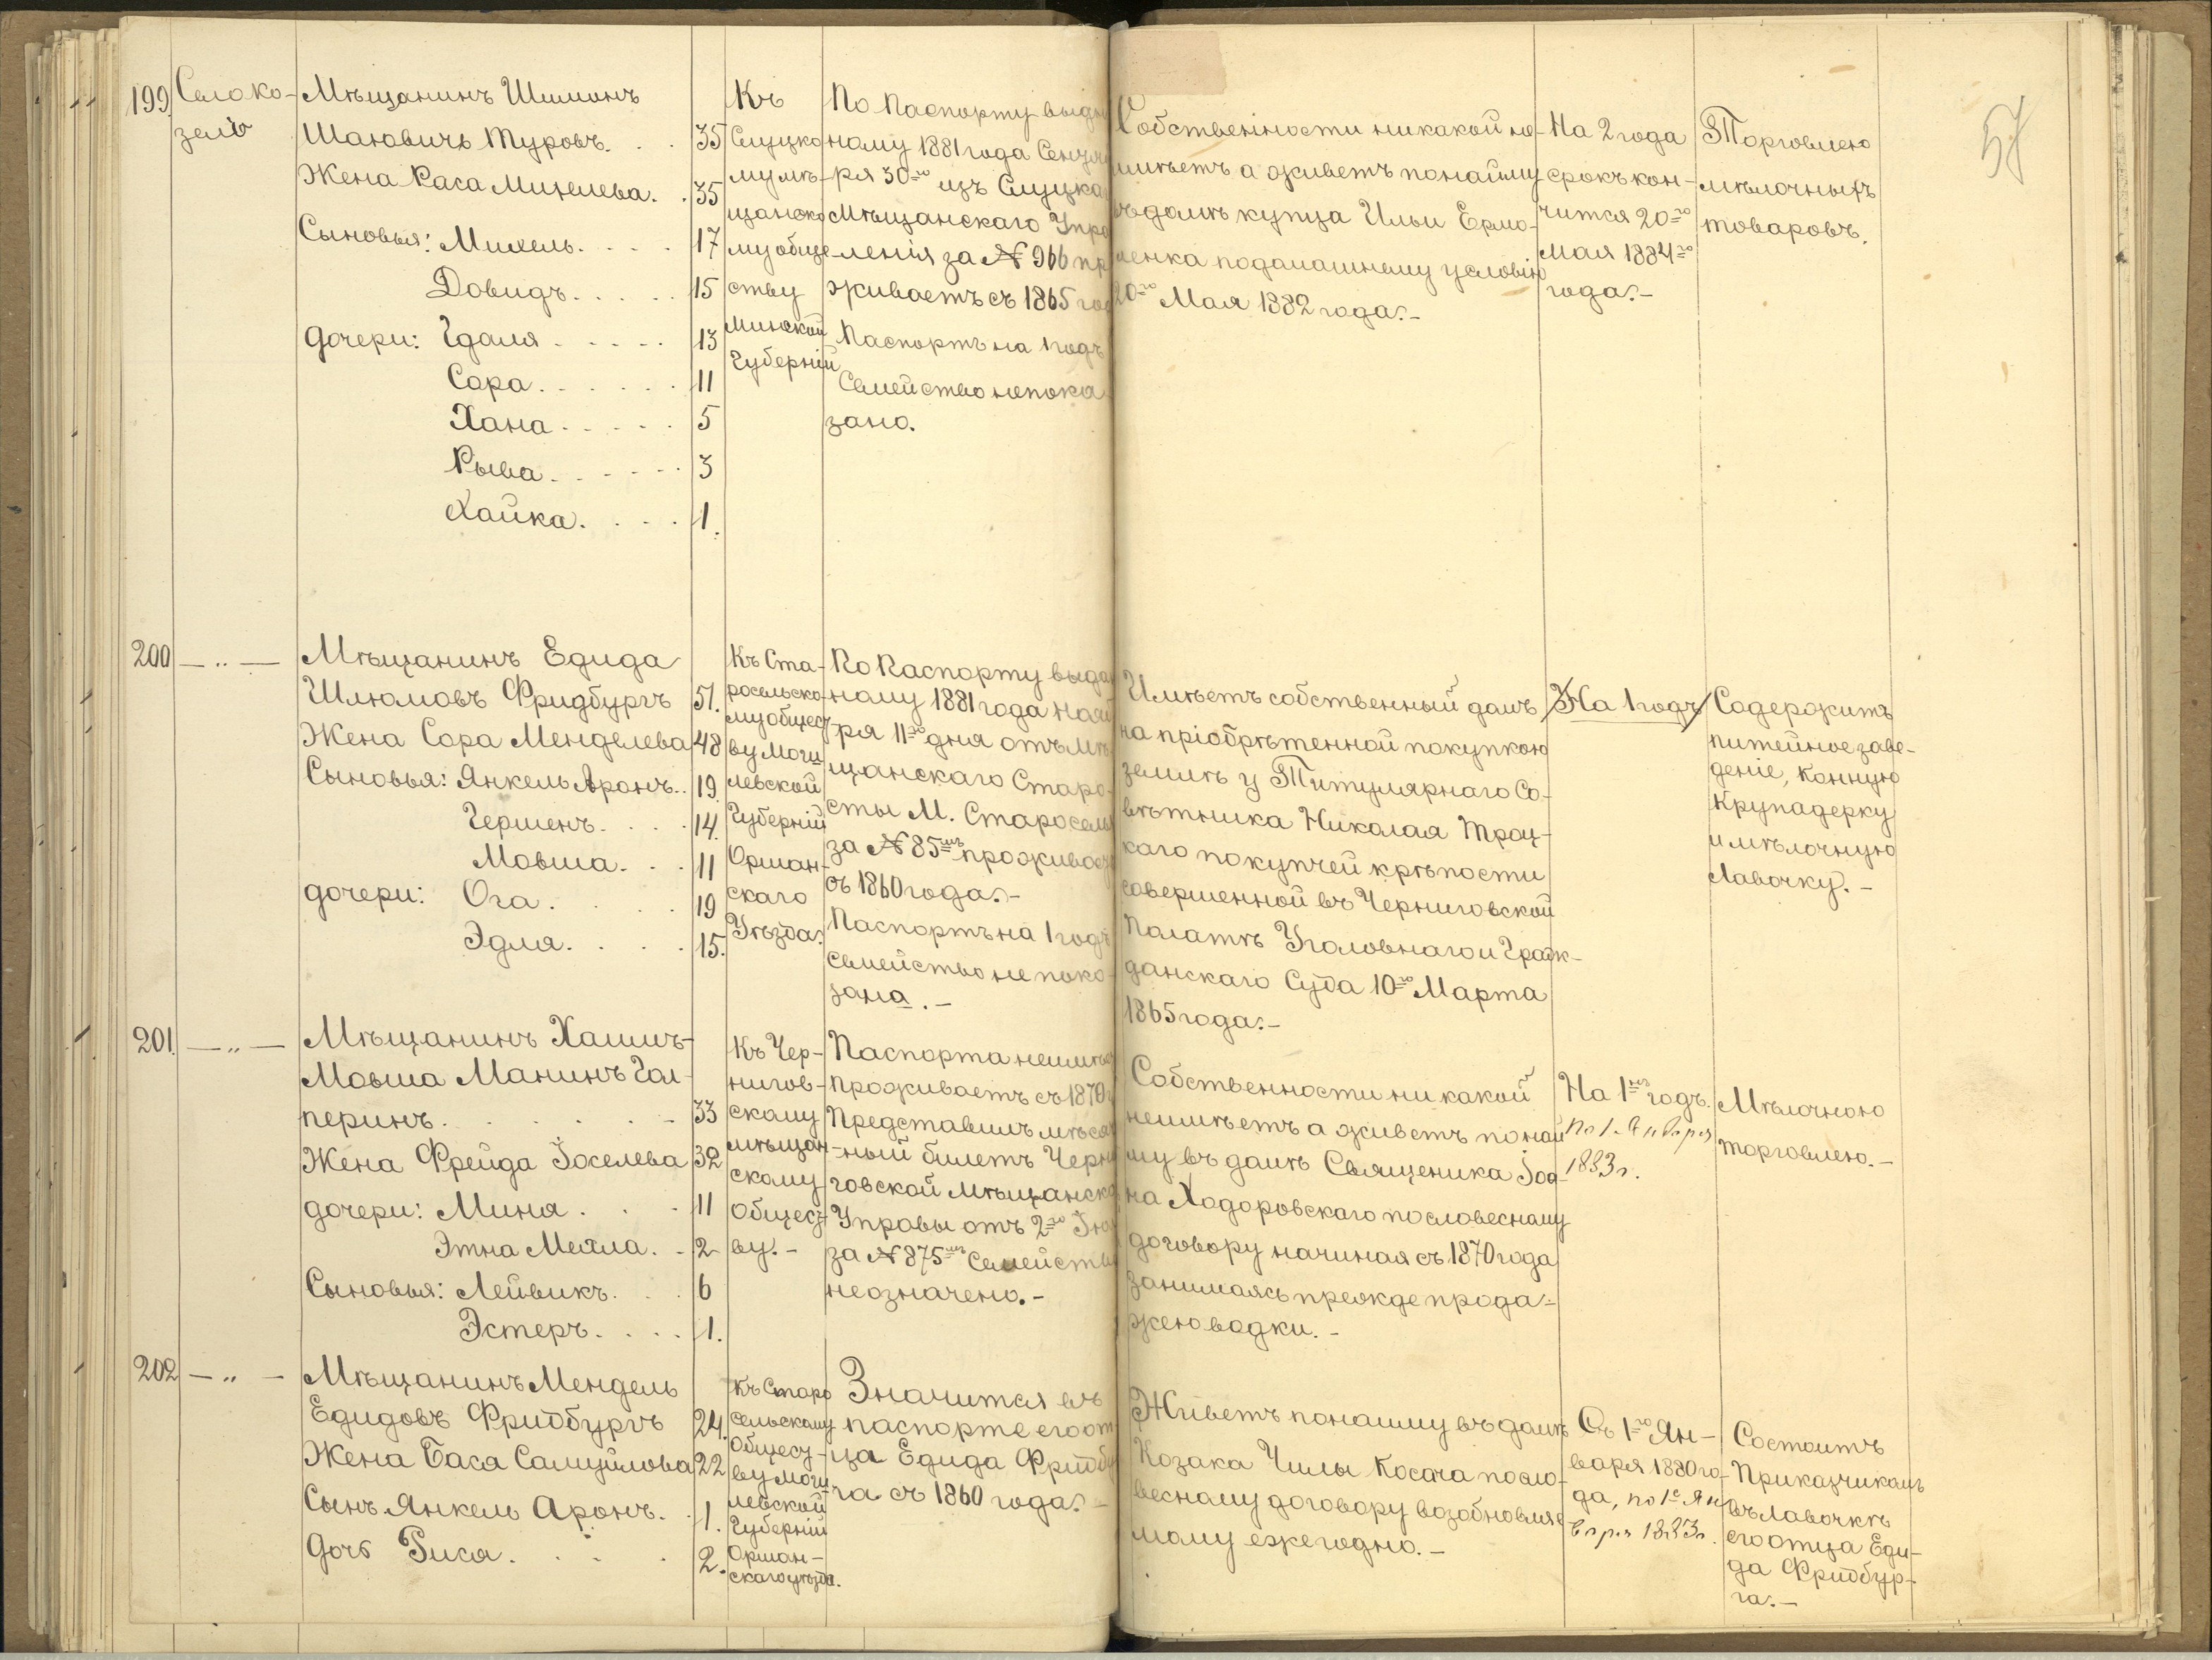 57
199
Село Ко-
зелъ
Мѣщанинъ Шимонъ
Шаювичъ Туровъ. 35
Жена Раса Михелева. 35
Сыновья: Михель. 17
Довидъ. 15
дочери: Гдаля 13
Сора. 11
Хана 5
Рыва. 3
Хайка. 1.
Къ
Слуцко
му мѣ-
щанско
му обще-
ству
Минской
Губерніи
По Паспорту выдан
ному 1881 года Сентя
ря 30го изъ Слуцка
Мѣщанскаго Упра
вленія за № 966 про
живаетъ съ 1865 год
Паспортъ на 1 годъ
Семейство непока-
зано.
Собственности никакой не-
имѣетъ а живетъ понайму
въ домѣ купца Ильи Ермо-
ленка подомашнему условію
20го Мая 1882 года.-
На 2 года
срокъ кон-
чится 20го
Мая 1884го
года.-
Торговлею
мѣлочныхъ
товаровъ.
200 — „ —
Мѣщанинъ Едида
Шлюмовъ Фридбургъ 51.
Жена Сора Менделева 48
Сыновья: Янкель Аронъ.. 19
Гершенъ. 14.
Мовша. 11
дочери: Ога. 19
Эдля. 15.
Къ Ста-
росельско-
му общес
ву Моги
левской
Губерніи
Оршан-
скаго
Уѣзда.
По Паспорту выда
ному 1881 года Нояб
ря 11го дня отъ мѣ
щанскаго Старо-
сты М. Староселья
за № 85мъ проживает
съ 1860 года.-
Паспортъ на 1 годъ
семейство не пока-
зана.-
Имѣетъ собственный домъ
на пріобрѣтенной покупкою
землѣ у Титулярнаго Со-
вѣтника Николая Троц-
каго покупчей крѣпости
совершенной въ Черниговской
Палатѣ Уголовнаго и Граж-
данскаго Суда 10го Марта
1865 года.-
На 1 годъ
Содержитъ
питейное заве-
деніе, конную
Крупадерку
и мѣлочную
лавочку.-
201. — „ —
Мѣщанинъ Хаимъ-
Мовша Манинъ Гал-
перинъ. 33
Жена Фрейда Іоселева 32
дочери: Мина. 11
Этна Мехла. 2
Сыновья: Лейвикъ. 6
Эстеръ. 1.
Къ Чер-
нигов-
скому
мѣщан
скому
Общест
ву.-
Паспорта неимѣе
Проживаетъ съ 1870 г
Представилъ мѣсяч
-ный билетъ Черни
говской Мѣщанско
Управы отъ 2го Ію
за № 875мъ Семейств
неозначено.-
Собственности никакой
неимѣетъ а живетъ понай
му въ домѣ Священика Іоа-
на Ходоровскаго пословесному
договору начиная съ 1870 года
занимаясь прежде прода-
жею водки.-
На 1нъ годъ.
по 1. Января
1883 г.
Мѣлочною
торговлею.-
202 — „ —
Мѣщанинъ Мендель
Едидовъ Фридбургъ 24.
Жена Бася Самуйлова 22
Сынъ Янкель Аронъ. 1.
Дочь Рися. 2.
Къ Старо
сельскому
Общест-
ву Моги
левской
Губерніи
Оршан-
скаго уѣзда.
Значится въ
паспорте его от
ца Едида Фридбу
га съ 1860 года.-
Живетъ понайму въ домѣ
Козака Чилы Косача посло-
весному договору возобновляе
мому ежегодно.-
Съ 1го Ян-
варя 1880 го-
да, по 1е Ян
варя 1883 г.
Состоитъ
Приказчикомъ
въ лавочкѣ
его отца Еди-
да Фридбур-
га.-